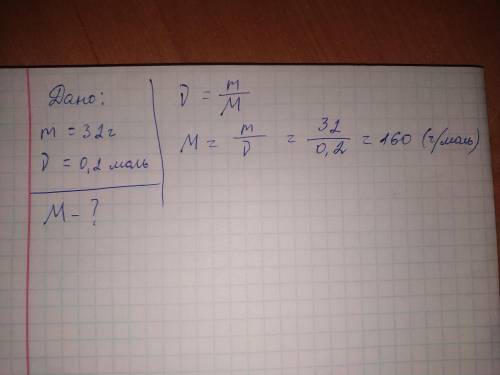 Дано:
m = 32 г
ν = 0,2 моль
M - ?
ν = m/M
M = m/ν = 32/0,2 = 160 (г/моль)